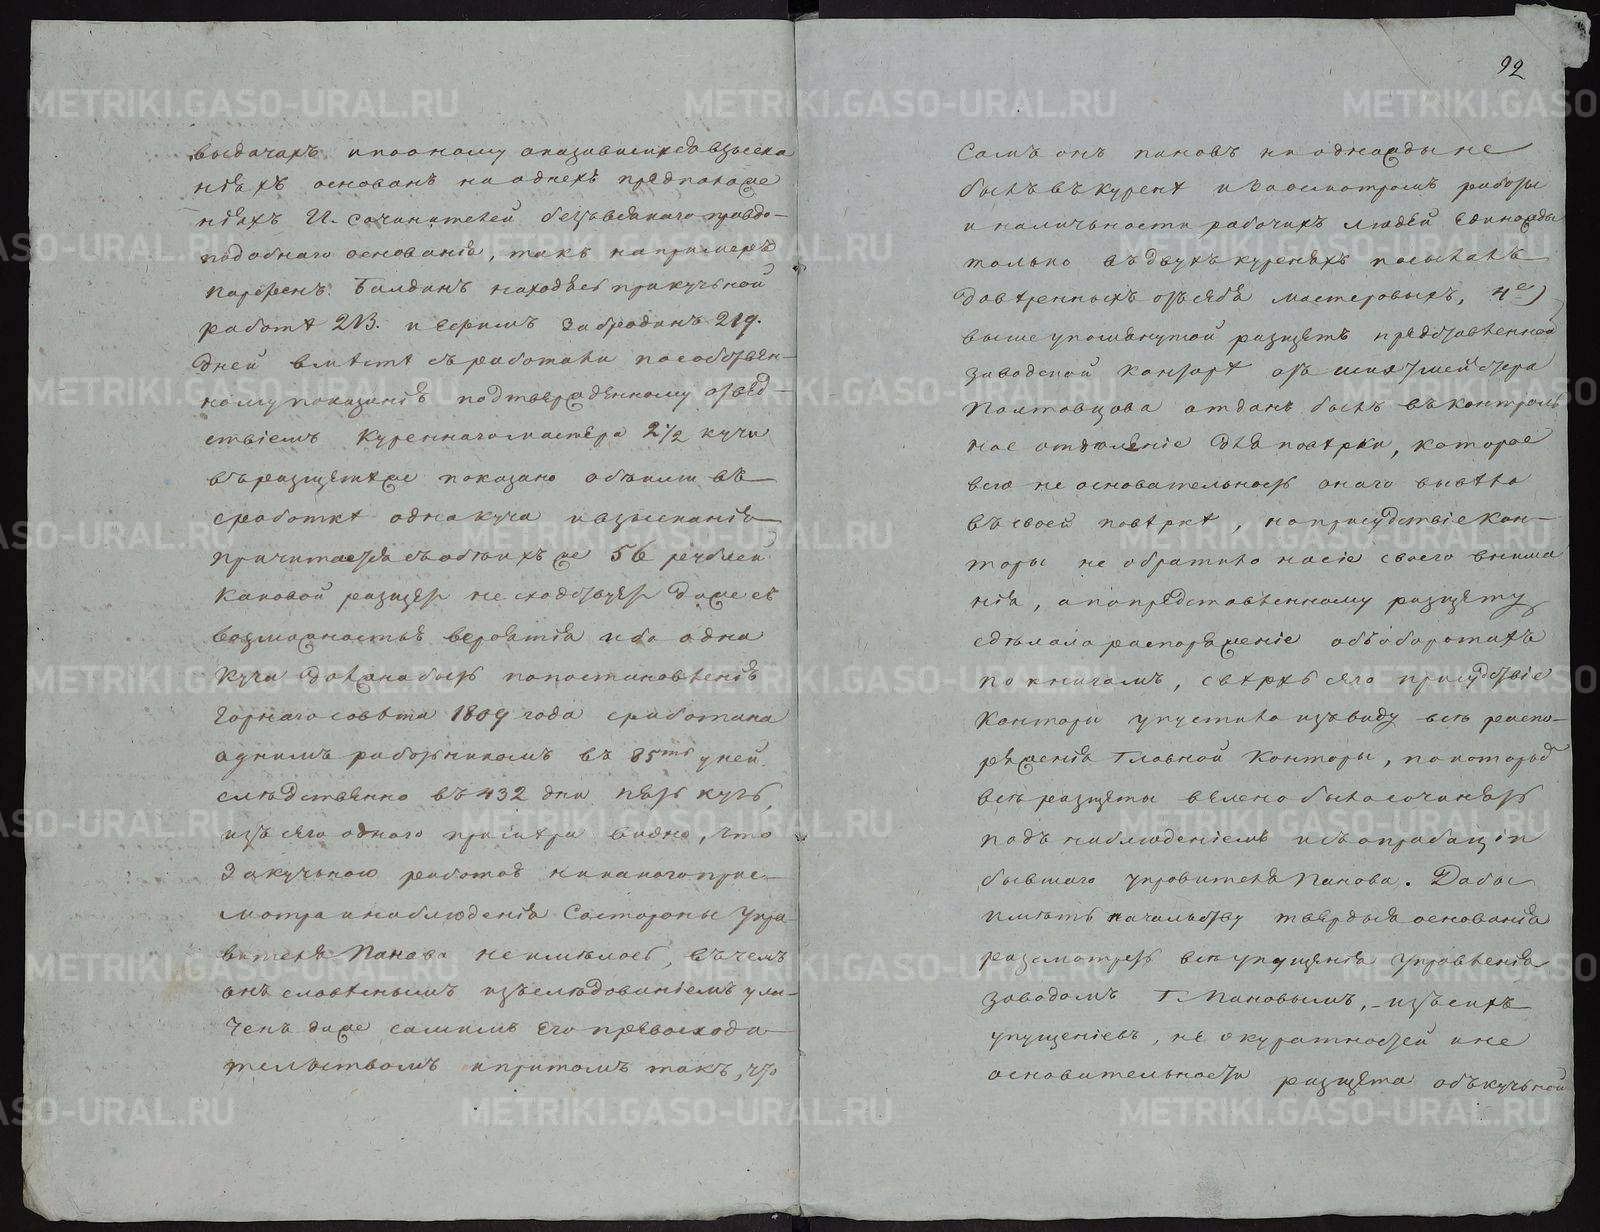 выдачахъ и по оному оказавшихся взыска
нiяхъ основанъ на однехъ предположе
нiяхъ и сочинителей безъ всякаго правдо-
подобнаго основанiя, такъ напримеръ
Парфенъ Балдинъ находясь при кучьной
работѣ 213. и Ефимъ Забродинъ 219.
дней вместѣ съработали пособствен-
ному показанiю подтвержденному отвѣт-
ствiемъ куреннаго мастера 2 1/2 кучи
въ разщетѣ же показано обоими въ
сработкѣ одна куча и взысканiя
причитается съ обоихъ же 56 рублей
каковой разщетъ не сходствуетъ даже съ
возможностью вероятiя ибо одна
куча должна быть по постановленiю
Горнаго совѣта 1809 года сработана
однимъ работникомъ въ 85ть дней.
следственно въ 432 дни пять кучь,
изъ сего одного примѣра видно, что
за кучьною работою никакого прис-
мотра и наблюденiя со стороны Упра-
вителя Панова не имелось, въ чемъ
онъ словѣснымъ изследованiемъ ули-
ченъ даже самимъ Его превосходи
тельствомъ и притомъ такъ, что
92
Самъ онъ Пановъ ни однажды не
былъ въ куренѣ и за осмотромъ работы
и наличьности рабочихъ людей единожды
только въ двухъ куреняхъ посылалъ
довѣренныхъ отъ себя мастеровыхъ, 4е)
выше упомянутой разщетъ представленной
заводской конторѣ отъ шихтмейстера
Полтовцова отданъ былъ въ контроль
ное отделенiе для повѣрки, которое
всю не основательность онаго вывѣло
въ своей повѣркѣ, но присудствiе кон-
торы не обратило на сiе своего внима
нiя, а по представленному разщету
сдѣлала распоряженiе объ оборотахъ
по книгамъ, сверхъ сего присудствiе
конторы упустило изъ виду всѣ распо-
ряженiя Главной Конторы, по которой
всѣ разщеты велено было сочинять
подъ наблюденiемъ и съ опробацiи
бывшаго управителя Панова. Дабы
иметь начальству твердыя основанiя
разсмотреть всѣ упущенiя управленiя
заводомъ Г. Пановымъ, изъ сихъ
упущенiевъ, не окуратностей и не
основательности разщета объ кучьной